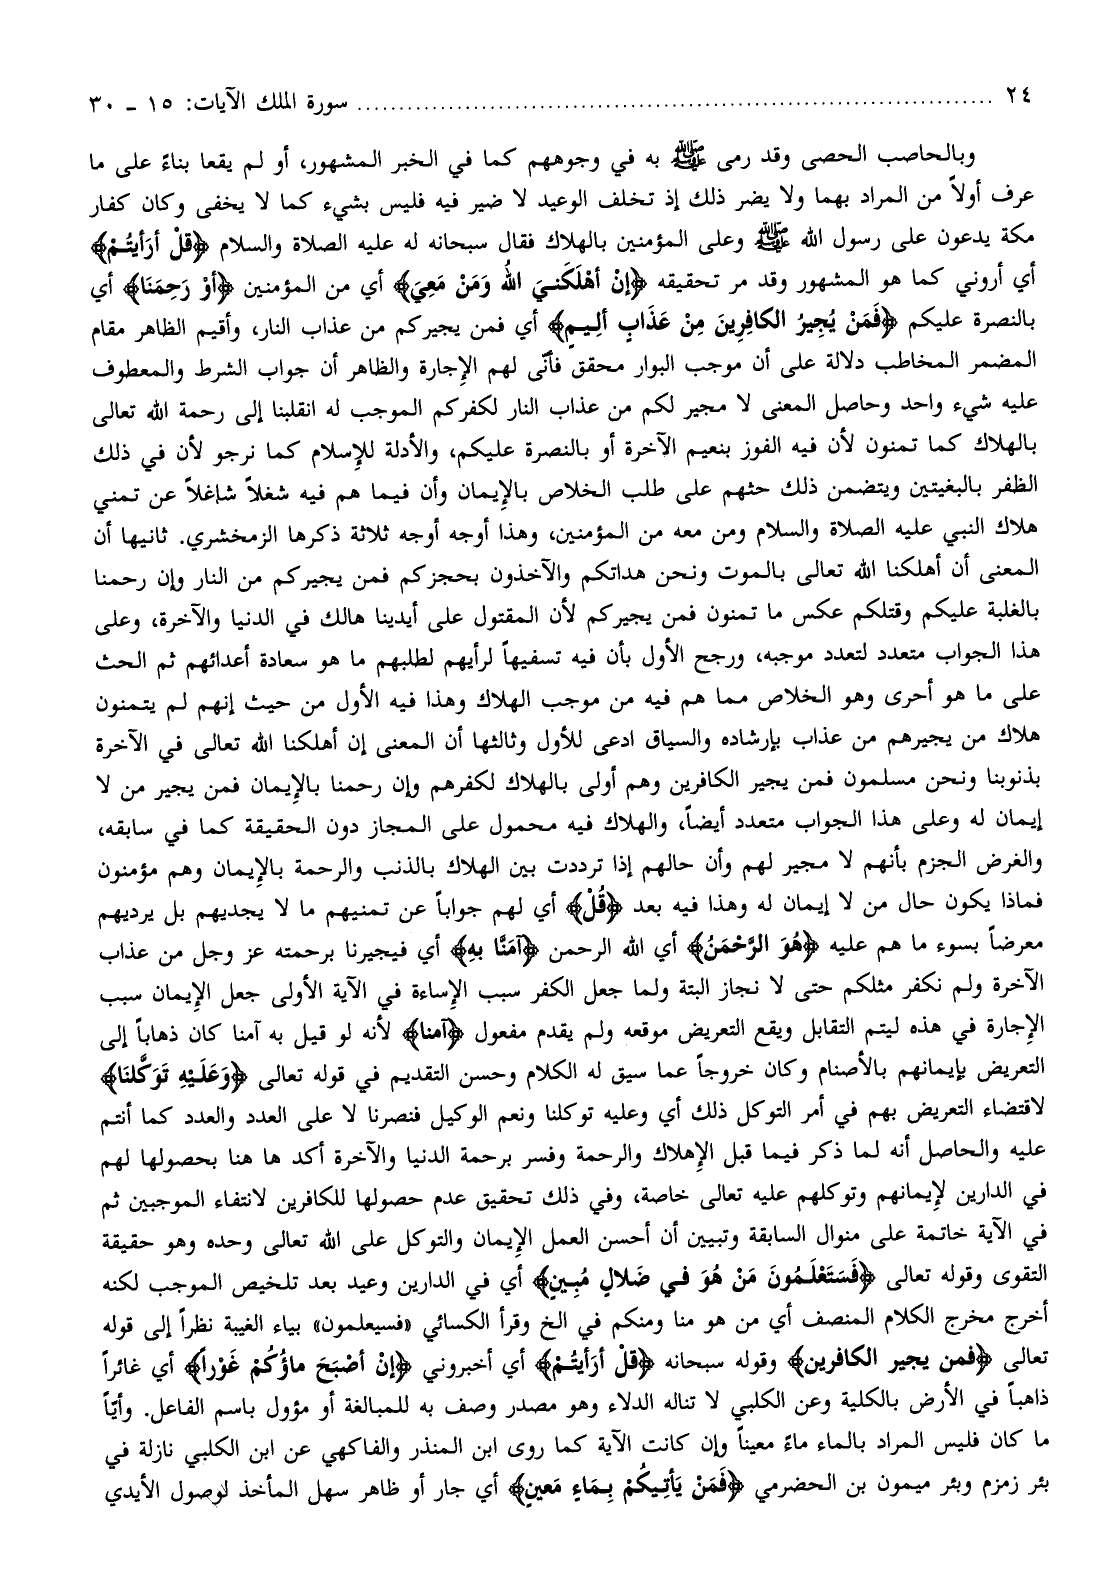 ٢٤ ........................................................................ سورة الملك الآيات: ١٥ ـ ٣٠
وبالحاصب الحصى وقد رمى ﷺ به في وجوههم كما في الخبر المشهور، أو لم يقعا بناءً على ما
عرف أولاً من المراد بهما ولا يضر ذلك إذ تخلف الوعيد لا ضير فيه فليس بشيء كما لا يخفى وكان كفار
مكة يدعون على رسول الله ﷺ وعلى المؤمنين بالهلاك فقال سبحانه له عليه الصلاة والسلام ﴿قُلْ أرَأيتُمْ﴾
أي أروني كما هو المشهور وقد مر تحقيقه ﴿إنْ أهْلَكَنيَ اللهُ وَمَنْ مَعِيَ﴾ أي من المؤمنين ﴿أوْ رَحِمَنَا﴾ أي
بالنصرة عليكم ﴿فَمَنْ يُجِيرُ الكافِرِينَ مِنْ عَذَابٍ ألِيمٍ﴾ أي فمن يجيركم من عذاب النار، وأقيم الظاهر مقام
المضمر المخاطب دلالة على أن موجب البوار محقق فأنّى لهم الإِجارة والظاهر أن جواب الشرط والمعطوف
عليه شيء واحد وحاصل المعنى لا مجير لكم من عذاب النار لكفركم الموجب له انقلبنا إلى رحمة الله تعالى
بالهلاك كما تمنون لأن فيه الفوز بنعيم الآخرة أو بالنصرة عليكم، والأدلة للإِسلام كما نرجو لأن في ذلك
الظفر بالبغيتين ويتضمن ذلك حثهم على طلب الخلاص بالإِيمان وأن فيما هم فيه شغلاً شاغلاً عن تمني
هلاك النبي عليه الصلاة والسلام ومن معه من المؤمنين، وهذا أوجه أوجه ثلاثة ذكرها الزمخشري. ثانيها أن
المعنى أن أهلكنا الله تعالى بالموت ونحن هداتكم والآخذون بحجزكم فمن يجيركم من النار وإن رحمنا
بالغلبة عليكم وقتلكم عكس ما تمنون فمن يجيركم لأن المقتول على أيدينا هالك في الدنيا والآخرة، وعلى
هذا الجواب متعدد لتعدد موجبه، ورجح الأول بأن فيه تسفيهاً لرأيهم لطلبهم ما هو سعادة أعدائهم ثم الحث
على ما هو أحرى وهو الخلاص مما هم فيه من موجب الهلاك وهذا فيه الأول من حيث إنهم لم يتمنون
هلاك من يجيرهم من عذاب بإرشاده والسياق ادعى للأول وثالثها أن المعنى إن أهلكنا الله تعالى في الآخرة
بذنوبنا ونحن مسلمون فمن يجير الكافرين وهم أولى بالهلاك لكفرهم وإن رحمنا بالإِيمان فمن يجير من لا
إيمان له وعلى هذا الجواب متعدد أيضاً، والهلاك فيه محمول على المجاز دون الحقيقة كما في سابقه،
والغرض الجزم بأنهم لا مجير لهم وأن حالهم إذا ترددت بين الهلاك بالذنب والرحمة بالإِيمان وهم مؤمنون
فماذا يكون حال من لا إيمان له وهذا فيه بعد ﴿قُلْ﴾ أي لهم جواباً عن تمنيهم ما لا يجديهم بل يرديهم
معرضاً بسوء ما هم عليه ﴿هُوَ الرَّحْمَنُ﴾ أي الله الرحمن ﴿آمَنَّا بِهِ﴾ أي فيجيرنا برحمته عز وجل من عذاب
الآخرة ولم نكفر مثلكم حتى لا نجاز البتة ولما جعل الكفر سبب الإِساءة في الآية الأولى جعل الإِيمان سبب
الإِجارة في هذه ليتم التقابل ويقع التعريض موقعه ولم يقدم مفعول ﴿آمنا﴾ لأنه لو قيل به آمنا كان ذهاباً إلى
التعريض بإيمانهم بالأصنام وكان خروجاً عما سيق له الكلام وحسن التقديم في قوله تعالى ﴿وَعَلَيْهِ تَوَكَّلنَا﴾
لاقتضاء التعريض بهم في أمر التوكل ذلك أي وعليه توكلنا ونعم الوكيل فنصرنا لا على العدد والعدد كما أنتم
عليه والحاصل أنه لما ذكر فيما قبل الإِهلاك والرحمة وفسر برحمة الدنيا والآخرة أكد ها هنا بحصولها لهم
في الدارين لإِيمانهم وتوكلهم عليه تعالى خاصة، وفي ذلك تحقيق عدم حصولها للكافرين لانتفاء الموجبين ثم
في الآية خاتمة على منوال السابقة وتبيين أن أحسن العمل الإِيمان والتوكل على الله تعالى وحده وهو حقيقة
التقوى وقوله تعالى ﴿فَسَتَعْلَمُونَ مَنْ هُوَ في ضَلالٍ مُبِينٍ﴾ أي في الدارين وعيد بعد تلخيص الموجب لكنه
أخرج مخرج الكلام المنصف أي من هو منا ومنكم في الخ وقرأ الكسائي «فسيعلمون» بياء الغيبة نظراً إلى قوله
تعالى ﴿فمن يجير الكافرين﴾ وقوله سبحانه ﴿قُلْ أرَأيتُمْ﴾ أي أخبروني ﴿إنْ أصْبَحَ ماؤُكُمْ غَوْراً﴾ أي غائراً
ذاهباً في الأرض بالكلية وعن الكلبي لا تناله الدلاء وهو مصدر وصف به للمبالغة أو مؤول باسم الفاعل. وأيّاً
ما كان فليس المراد بالماء ماءً معيناً وإن كانت الآية كما روى ابن المنذر والفاكهي عن ابن الكلبي نازلة في
بئر زمزم وبئر ميمون بن الحضرمي ﴿فَمَنْ يَأتِيكُمْ بِمَاءٍ مَعينٍ﴾ أي جار أو ظاهر سهل المأخذ لوصول الأيدي